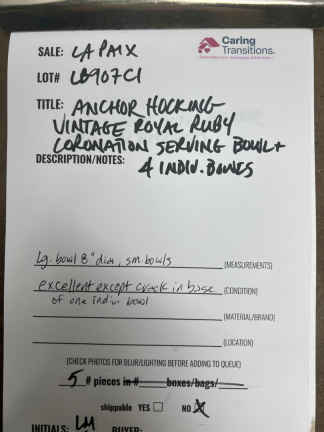 SALE: LA PAIX
Caring
Transitions.
LOT# LB907C1
TITLE: ANCHOR HOCKING
VINTAGE ROYAL RUBY
CORONATION SERVING BOWL +
DESCRIPTION/NOTES: 4 INDIV. BOWLS
Lg. bowl 8" dia, sm. bowls (MEASUREMENTS)
excellent except crack in base (CONDITION)
of one indiv bowl
(MATERIAL/BRAND)
(LOCATION)
(CHECK PHOTOS FOR BLUR/LIGHTING BEFORE ADDING TO QUEUE)
5 # pieces in # boxes/bags/
shippable YES NO X
INITIALS: LM BUYER: